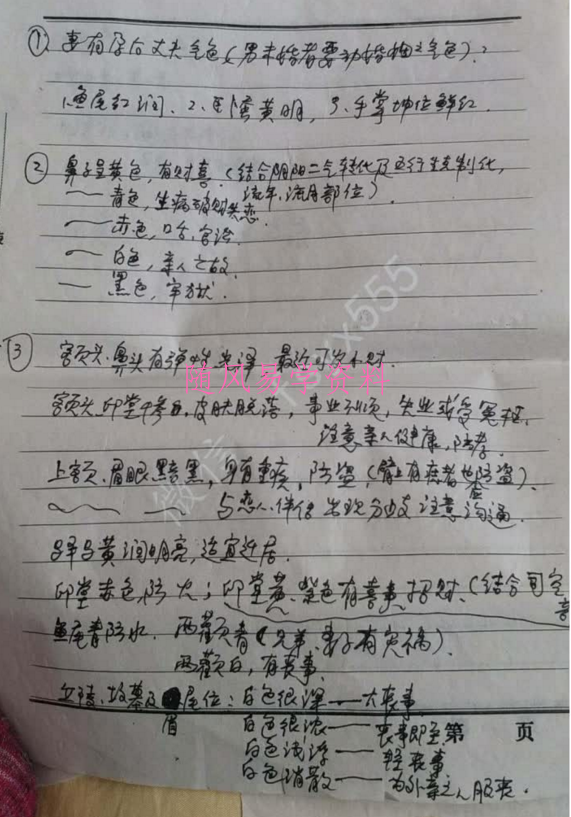 ① 妻有孕后丈夫气色（男未婚者要动婚姻之气色）：
1.鱼尾红润、2、卧蚕黄明，3、手掌坤位鲜红．
② 鼻子呈黄色，有财喜（结合阴阳二气转化及五行生克制化，
流年、流月部位）
—— 青色，生病破财失恋．
—— 赤色，口舌，官讼
—— 白色，亲人之故
—— 黑色，牢狱．
③ 额头、鼻头有弹性光泽 最近可发小财．
随风易学资料
额头、印堂中参白，皮肤脱落，事业不顺，失业或受冤枉，
注意亲人健康，防孝
上额、眉眼黯黑，身有重疾，防盗（肾上有疾者也防盗）．
与恋人、伴侣 出现分歧 注意沟通．
驿马黄润明亮，适宜迁居．
印堂赤色，防火；印堂黄、紫色有喜事、招财．（结合司空
鱼尾青防水． 两颧青（兄弟、妻子有灾祸）．
两颧白，有丧事．
丘陵、坟墓及眉尾位：白色很深 —— 大丧事
白色很浓 —— 丧事即至
第 页
白色浅浮 —— 轻丧事
白色消散 —— 为外亲之人服丧．